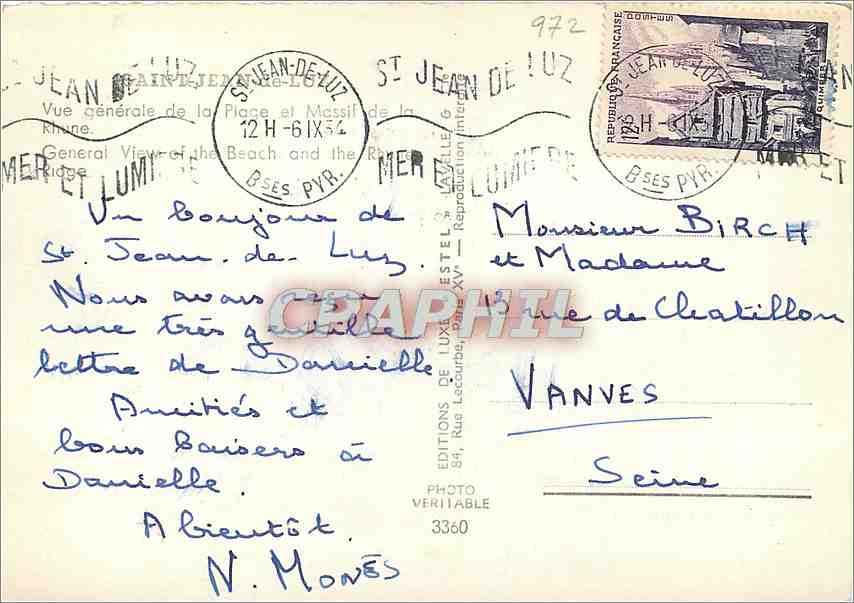 972
SAINT-JEAN-de-LUZ
Vue générale de la Plage et Massif de la
Rhune.
General View of the Beach and the Rhune
Ridge.
ST JEAN DE LUZ
MER ET LUMIERE
ST JEAN-DE-LUZ
12 H -6 IX 54
BSES PYR.
ST JEAN DE LUZ
MER ET LUMIERE
REPUBLIQUE FRANÇAISE
POSTES
QUIMPER
ST JEAN-DE-LUZ
BSES PYR.
MER ET
Un bonjour de
St. Jean-de-Luz.
Nous avons reçu
une très gentille
lettre de Danielle.
Amitiés et
bons baisers à
Danielle.
A bientôt.
N. MONÈS
EDITIONS DE LUXE "ESTEL"
84, Rue Lecourbe, Paris XVe — Reproduction interdite
PHOTO
VERITABLE
3360
Monsieur BIRCH
et Madame
13 rue de Chatillon
VANVES
Seine
CPAPHIL